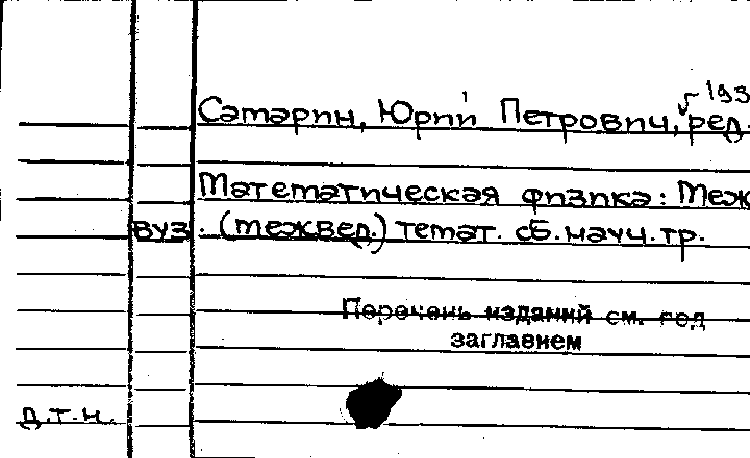 193
Сатарин, Юрий Петрович, ред.
Математическая физика: Меж
вуз. (межвед.) темат. сб. научн. тр.
Перечень изданий см. под
заглавием
д.т.н.